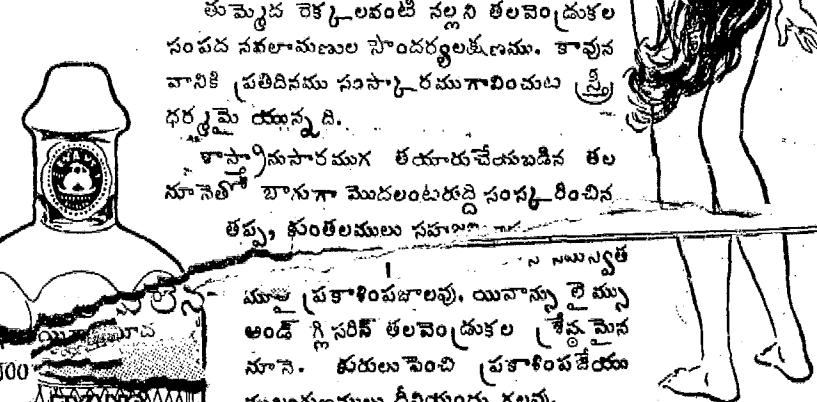 తుమ్మెద రెక్కలవంటి నల్లని తలవెండ్రుకల
సంపద నవలామణుల సౌందర్యలక్షణము. కావున
వానికి ప్రతిదినము సంస్కారముగావించుట స్త్రీ
ధర్మమై యున్నది.
శాస్త్రానుసారముగ తయారుచేయబడిన తల
నూనెతో బాగుగా మొదలంటరుద్ది సంస్కరించిన
తప్ప, కుంతలములు
ప్రకాశింపజాలవు. యివాన్సు లైమ్సు
అండ్ గ్లిసరిన్ తలవెండ్రుకల శ్రేష్ఠమైన
నూనె. కురులు పెంచి ప్రకాశింపజేయు
దీనియందు గలవు.